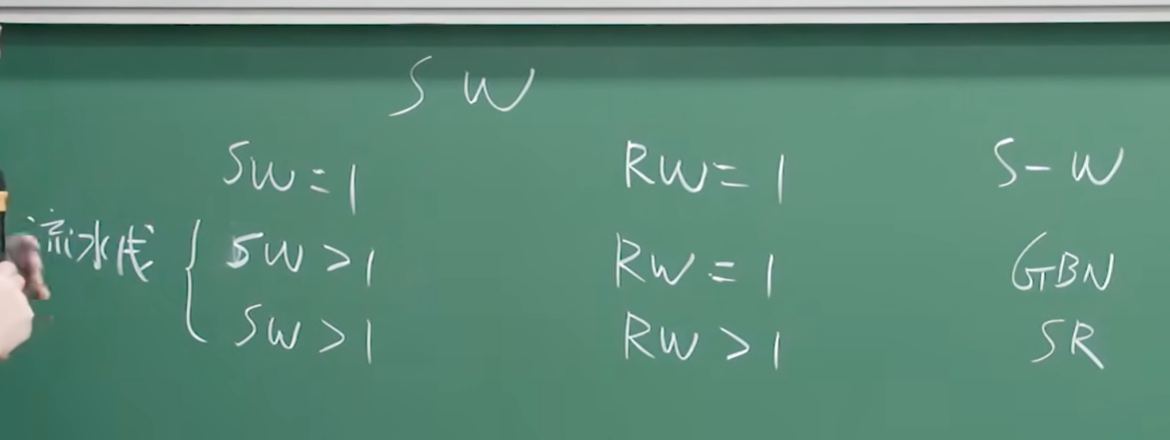 SW
SW=1 RW=1 S-W
流水线 { SW>1 RW=1 GBN
SW>1 RW>1 SR